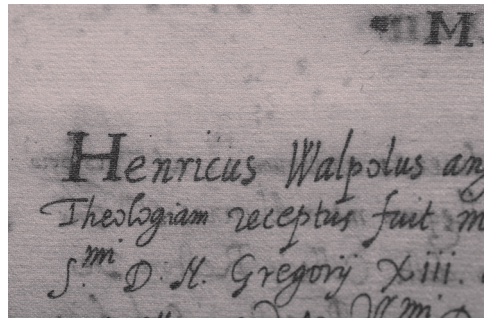 M.
Henricus Walpolus ang
Theologiam receptus fuit m
S.mi D. N. Gregorij Xiii.